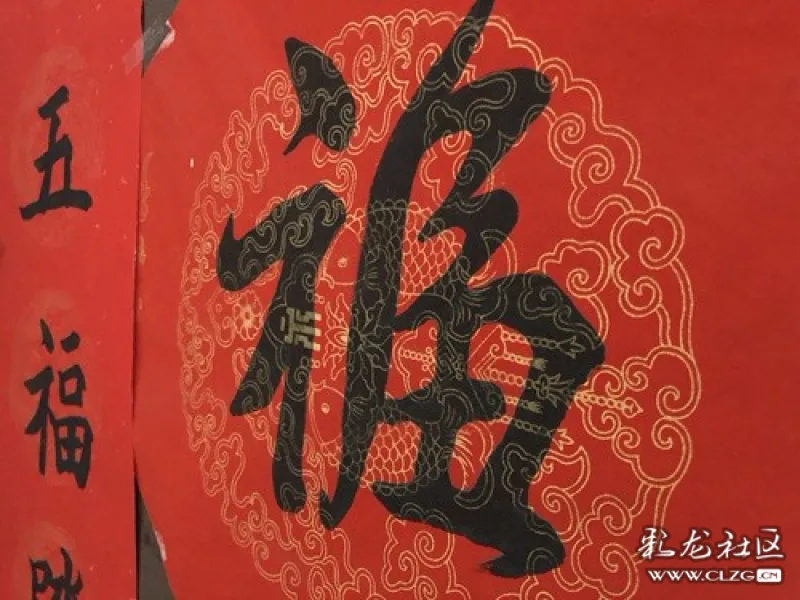 五福
福
彩龙社区
WWW.CLZG.CN